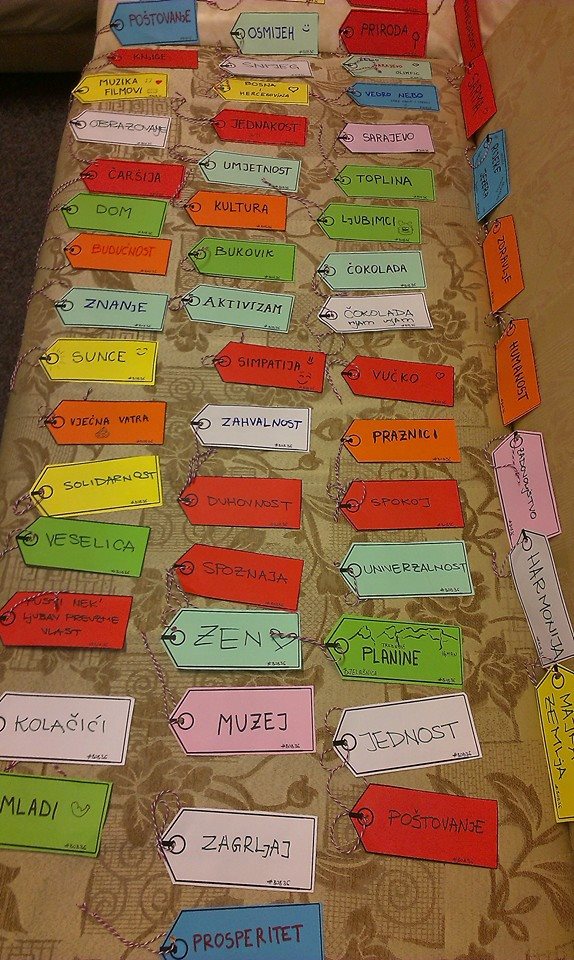 POŠTOVANJE
OSMIJEH
PRIRODA
KNJIGE
SNIJEG
SARAJEVO
OLIMPIC
MUZIKA
FILMOVI
BOSNA
HERCEGOVINA
VEDRO NEBO
OBRAZOVANJE
JEDNAKOST
SARAJEVO
ČARŠIJA
UMJETNOST
TOPLINA
DOM
KULTURA
LJUBIMCI
BUDUĆNOST
BUKOVIK
ČOKOLADA
ZNANJE
AKTIVIZAM
ČOKOLADA
MJAM MJAM
SUNCE
SIMPATIJA
VUČKO
VJEČNA VATRA
ZAHVALNOST
PRAZNICI
SOLIDARNOST
DUHOVNOST
SPOKOJ
VESELICA
SPOZNAJA
UNIVERZALNOST
PUSTI NEK'
LJUBAV PREUZME
VLAST
ZEN
PLANINE
BJELAŠNICA
KOLAČIĆI
MUZEJ
JEDNOST
MLADI
ZAGRLJAJ
POŠTOVANJE
PROSPERITET
ZDRAVLJE
HUMANOST
ZADOVOLJSTVO
HARMONIJA
MAJKA
ZEMLJA